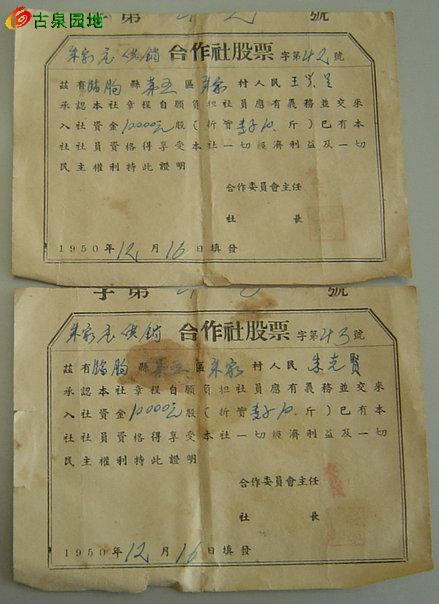 古泉园地
字第 號
朱家庄供銷 合作社股票 字第42號
茲有臨朐縣第五區朱家村人民王
承認本社章程自願負担社員應有義務並交來
入社資金10000元股(折實 10斤)已有本
社社員資格得享受本社一切經濟利益及一切
民主權利特此證明
合作委員會主任
社長
1950年12月16日填發
字第 號
朱家庄供銷 合作社股票 字第43號
茲有臨朐縣第五區朱家村人民 朱克賢
承認本社章程自願負担社員應有義務並交來
入社資金10000元股(折實 10斤)已有本
社社員資格得享受本社一切經濟利益及一切
民主權利特此證明
合作委員會主任
社長
1950年12月16日填發